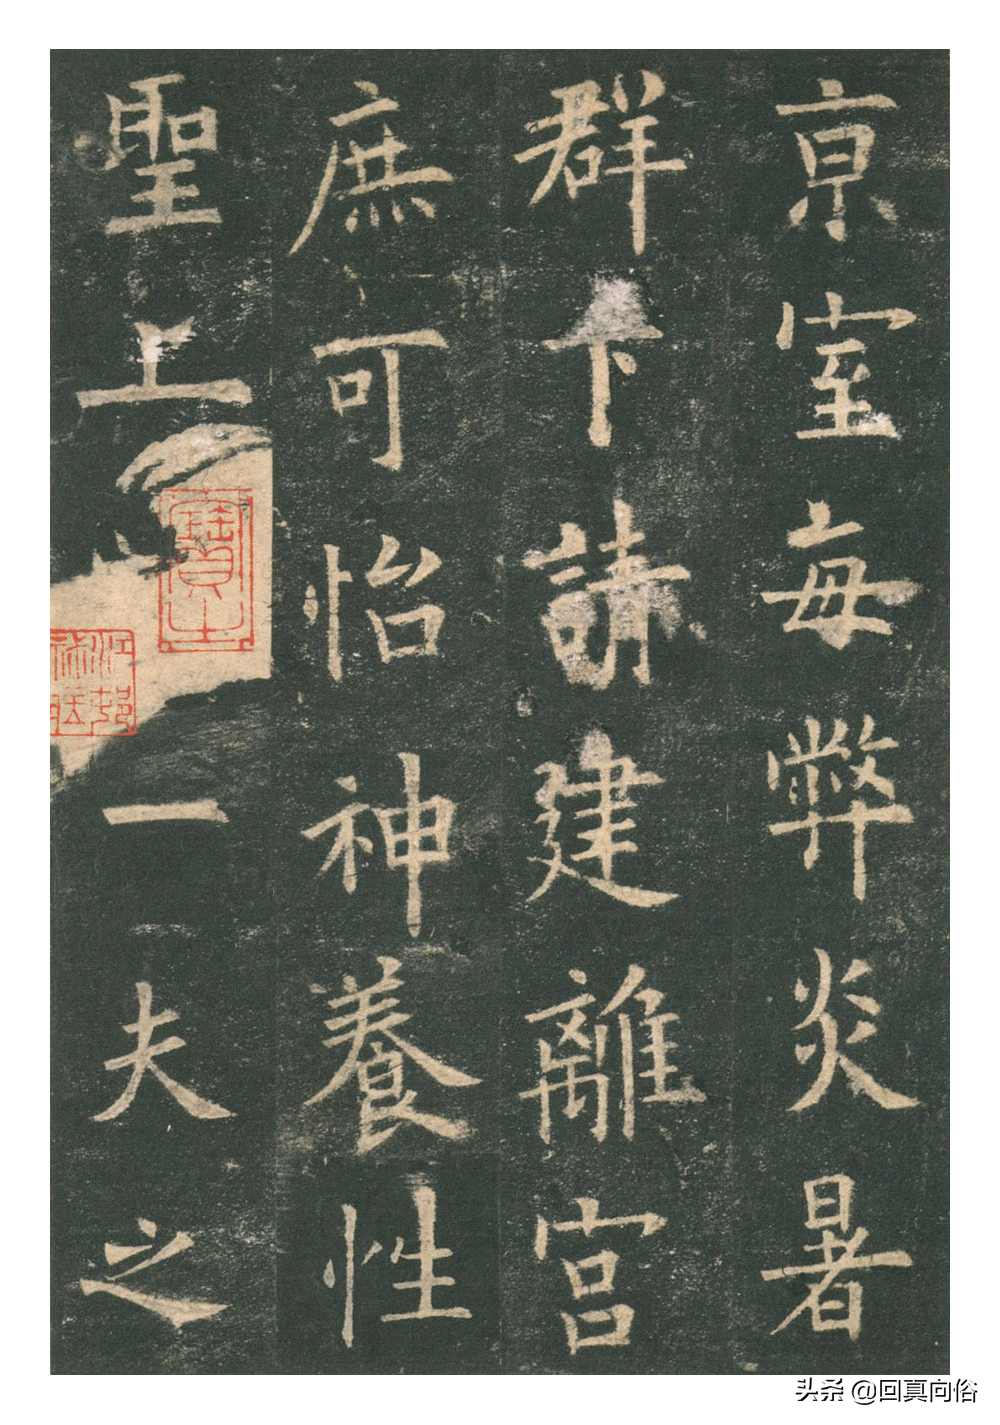 京室每弊炎暑
群下請建離宮
庶可怡神養性
聖上一夫之
頭条 @回真向俗